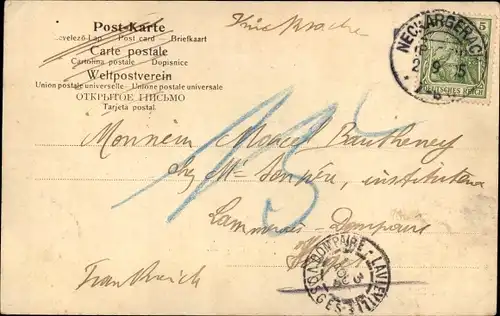 Post-Karte
Levelező-Lap — Post card — Briefkaart
Carte postale
Cartolina postale — Dopisnice
Weltpostverein
Union postale universelle — Unione postale universale
ОТКРЫТОЕ ПИСЬМО
Tarjeta postal
Drucksache
NECKARGERACH
5
DEUTSCHES REICH
15
Monsieur Marcel
chez Mr. instituteur
Dompaire
Vosges
DOMPAIRE-LAVIÉVILLE
VOSGES
Frankreich